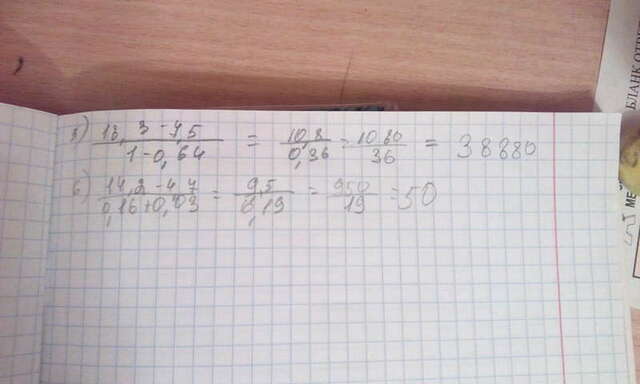 а) 18,3 - 7,5 / 1 - 0,64 = 10,8 / 0,36 = 1080 / 36 = 38880
б) 14,2 - 4,7 / 0,16 + 0,03 = 9,5 / 0,19 = 950 / 19 = 50
БЛАНК